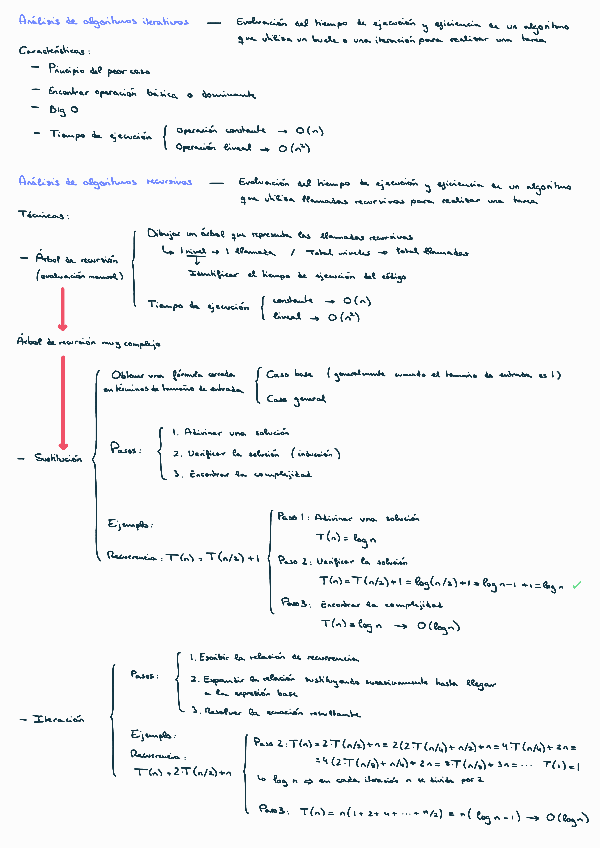 Análisis de algoritmos iterativos — Evaluación del tiempo de ejecución y eficiencia de un algoritmo
que utiliza un bucle o una iteración para realizar una tarea
Características:
— Principio del peor caso
— Encontrar operación básica o dominante
— Big O
— Tiempo de ejecución { Operación constante → O(n)
Operación lineal → O(n²)
Análisis de algoritmos recursivos — Evaluación del tiempo de ejecución y eficiencia de un algoritmo
que utiliza llamadas recursivas para realizar una tarea
Técnicas:
— Árbol de recursión
(evaluación manual)
Dibujar un árbol que representa las llamadas recursivas
↳ 1 nivel → 1 llamada / Total niveles → total llamadas
Identificar el tiempo de ejecución del código
Tiempo de ejecución { constante → O(n)
lineal → O(n²)
Árbol de recursión muy complejo
— Sustitución
Obtener una fórmula cerrada
en términos de tamaño de entrada
Caso base (generalmente cuando el tamaño de entrada es 1)
Caso general
Pasos:
1. Adivinar una solución
2. Verificar la solución (inducción)
3. Encontrar la complejidad
Ejemplo:
Recurrencia: T(n) = T(n/2) + 1
Paso 1: Adivinar una solución
T(n) = log n
Paso 2: Verificar la solución
T(n) = T(n/2) + 1 = log(n/2) + 1 = log n - 1 + 1 = log n ✓
Paso 3: Encontrar la complejidad
T(n) = log n → O(log n)
— Iteración
Pasos:
1. Escribir la relación de recurrencia
2. Expandir la relación sustituyendo sucesivamente hasta llegar
a la expresión base
3. Resolver la ecuación resultante
Ejemplo:
Recurrencia:
T(n) = 2·T(n/2) + n
Paso 2: T(n) = 2·T(n/2) + n = 2(2·T(n/4) + n/2) + n = 4·T(n/4) + 2n =
= 4(2·T(n/8) + n/4) + 2n = 8·T(n/8) + 3n = ··· T(1) = 1
↳ log n ⇒ en cada iteración n se divide por 2
Paso 3: T(n) = n(1 + 2 + 4 + ··· + n/2) = n(log n - 1) → O(log n)